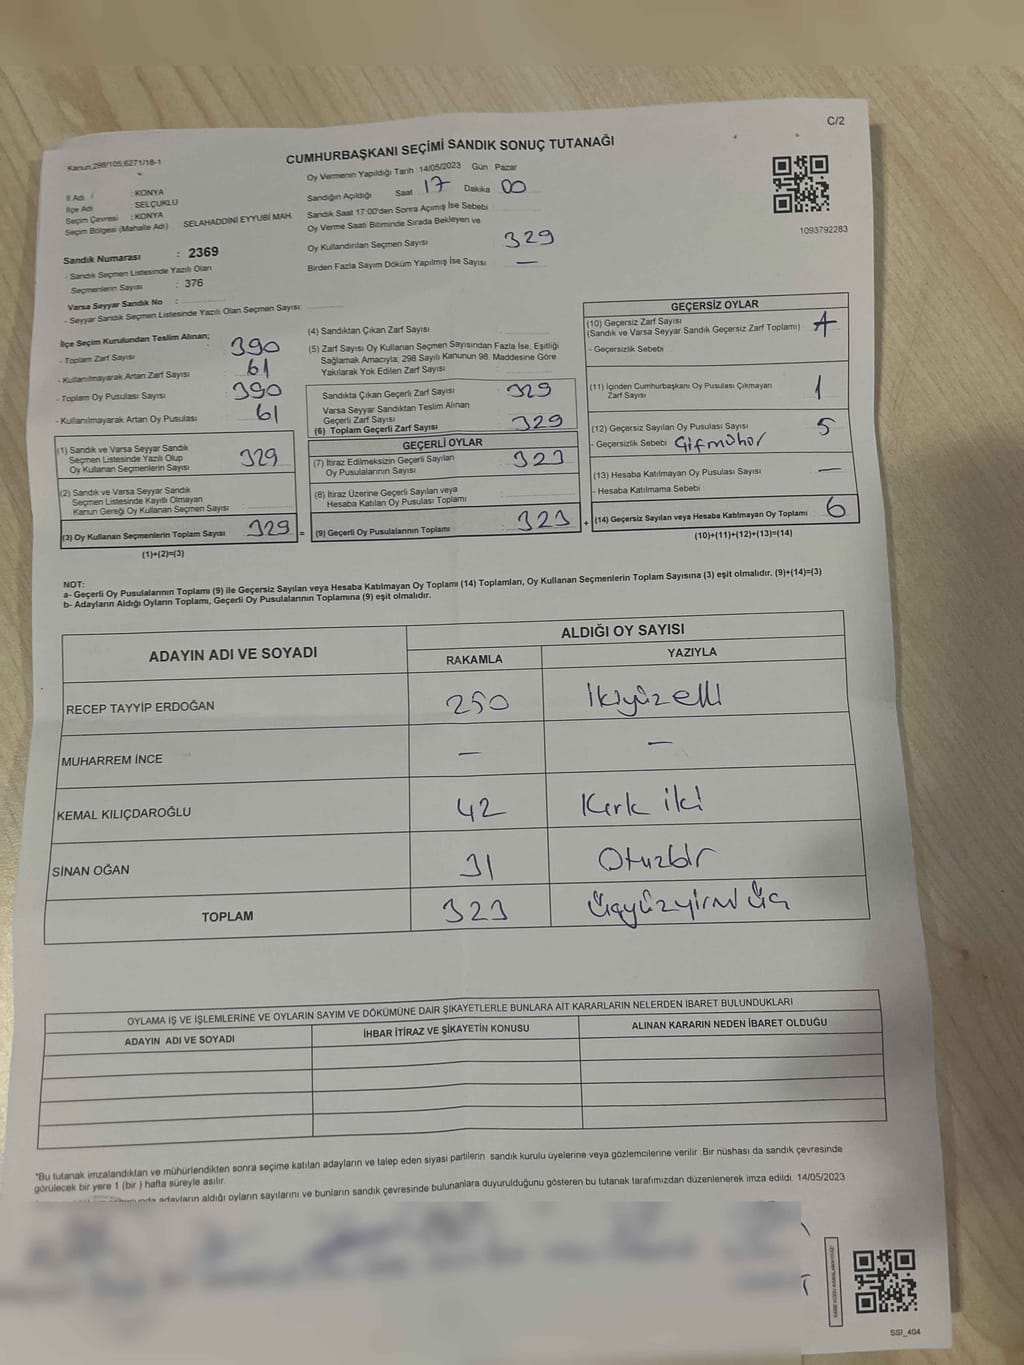 C/2
Kanun 298/105,6271/18-1
CUMHURBAŞKANI SEÇİMİ SANDIK SONUÇ TUTANAĞI
Oy Vermenin Yapıldığı Tarih : 14/05/2023 Gün : Pazar
İl Adı : KONYA
İlçe Adı : SELÇUKLU
Seçim Çevresi : KONYA
Seçim Bölgesi (Mahalle Adı) SELAHADDİNİ EYYUBİ MAH.
Sandığın Açıldığı Saat 17 Dakika 00
Sandık Saat 17:00'den Sonra Açılmış İse Sebebi :
Oy Verme Saati Bitiminde Sırada Bekleyen ve
Oy Kullandırılan Seçmen Sayısı : 329
Birden Fazla Sayım Döküm Yapılmış İse Sayısı —
1093792283
Sandık Numarası : 2369
- Sandık Seçmen Listesinde Yazılı Olan
Seçmenlerin Sayısı : 376
Varsa Seyyar Sandık No :
- Seyyar Sandık Seçmen Listesinde Yazılı Olan Seçmen Sayısı:
İlçe Seçim Kurulundan Teslim Alınan;
- Toplam Zarf Sayısı 390
- Kullanılmayarak Artan Zarf Sayısı 61
- Toplam Oy Pusulası Sayısı 390
- Kullanılmayarak Artan Oy Pusulası 61
(1) Sandık ve Varsa Seyyar Sandık
Seçmen Listesinde Yazılı Olup
Oy Kullanan Seçmenlerin Sayısı 329
(2) Sandık ve Varsa Seyyar Sandık
Seçmen Listesinde Kayıtlı Olmayan
Kanun Gereği Oy Kullanan Seçmen Sayısı :
(3) Oy Kullanan Seçmenlerin Toplam Sayısı 329 =
(1)+(2)=(3)
(4) Sandıktan Çıkan Zarf Sayısı
(5) Zarf Sayısı Oy Kullanan Seçmen Sayısından Fazla İse, Eşitliği
Sağlamak Amacıyla; 298 Sayılı Kanunun 98. Maddesine Göre
Yakılarak Yok Edilen Zarf Sayısı
Sandıkta Çıkan Geçerli Zarf Sayısı 329
Varsa Seyyar Sandıktan Teslim Alınan
Geçerli Zarf Sayısı
(6) Toplam Geçerli Zarf Sayısı 329
GEÇERLİ OYLAR
(7) İtiraz Edilmeksizin Geçerli Sayılan
Oy Pusulalarının Sayısı 323
(8) İtiraz Üzerine Geçerli Sayılan veya
Hesaba Katılan Oy Pusulası Toplamı
(9) Geçerli Oy Pusulalarının Toplamı 323 +
GEÇERSİZ OYLAR
(10) Geçersiz Zarf Sayısı
(Sandık ve Varsa Seyyar Sandık Geçersiz Zarf Toplamı)
- Geçersizlik Sebebi
(11) İçinden Cumhurbaşkanı Oy Pusulası Çıkmayan
Zarf Sayısı 1
(12) Geçersiz Sayılan Oy Pusulası Sayısı 5
- Geçersizlik Sebebi Çiftmühür
(13) Hesaba Katılmayan Oy Pusulası Sayısı —
- Hesaba Katılmama Sebebi
(14) Geçersiz Sayılan veya Hesaba Katılmayan Oy Toplamı 6
(10)+(11)+(12)+(13)=(14)
NOT:
a- Geçerli Oy Pusulalarının Toplamı (9) ile Geçersiz Sayılan veya Hesaba Katılmayan Oy Toplamı (14) Toplamları, Oy Kullanan Seçmenlerin Toplam Sayısına (3) eşit olmalıdır. (9)+(14)=(3)
b- Adayların Aldığı Oyların Toplamı, Geçerli Oy Pusulalarının Toplamına (9) eşit olmalıdır.
ADAYIN ADI VE SOYADI ALDIĞI OY SAYISI
RAKAMLA YAZIYLA
RECEP TAYYİP ERDOĞAN 250 İkiyüzelli
MUHARREM İNCE — —
KEMAL KILIÇDAROĞLU 42 Kırk iki
SİNAN OĞAN 31 Otuzbir
TOPLAM 323 Üçyüzyirmi Üç
OYLAMA İŞ VE İŞLEMLERİNE VE OYLARIN SAYIM VE DÖKÜMÜNE DAİR ŞİKAYETLERLE BUNLARA AİT KARARLARIN NELERDEN İBARET BULUNDUKLARI
ADAYIN ADI VE SOYADI İHBAR İTİRAZ VE ŞİKAYETİN KONUSU ALINAN KARARIN NEDEN İBARET OLDUĞU
*Bu tutanak imzalandıktan ve mühürlendikten sonra seçime katılan adayların ve talep eden siyasi partilerin sandık kurulu üyelerine veya gözlemcilerine verilir .Bir nüshası da sandık çevresinde
görülecek bir yere 1 (bir ) hafta süreyle asılır.
adayların aldığı oyların sayılarını ve bunların sandık çevresinde bulunanlara duyurulduğunu gösteren bu tutanak tarafımızdan düzenlenerek imza edildi. 14/05/2023
SS1_404